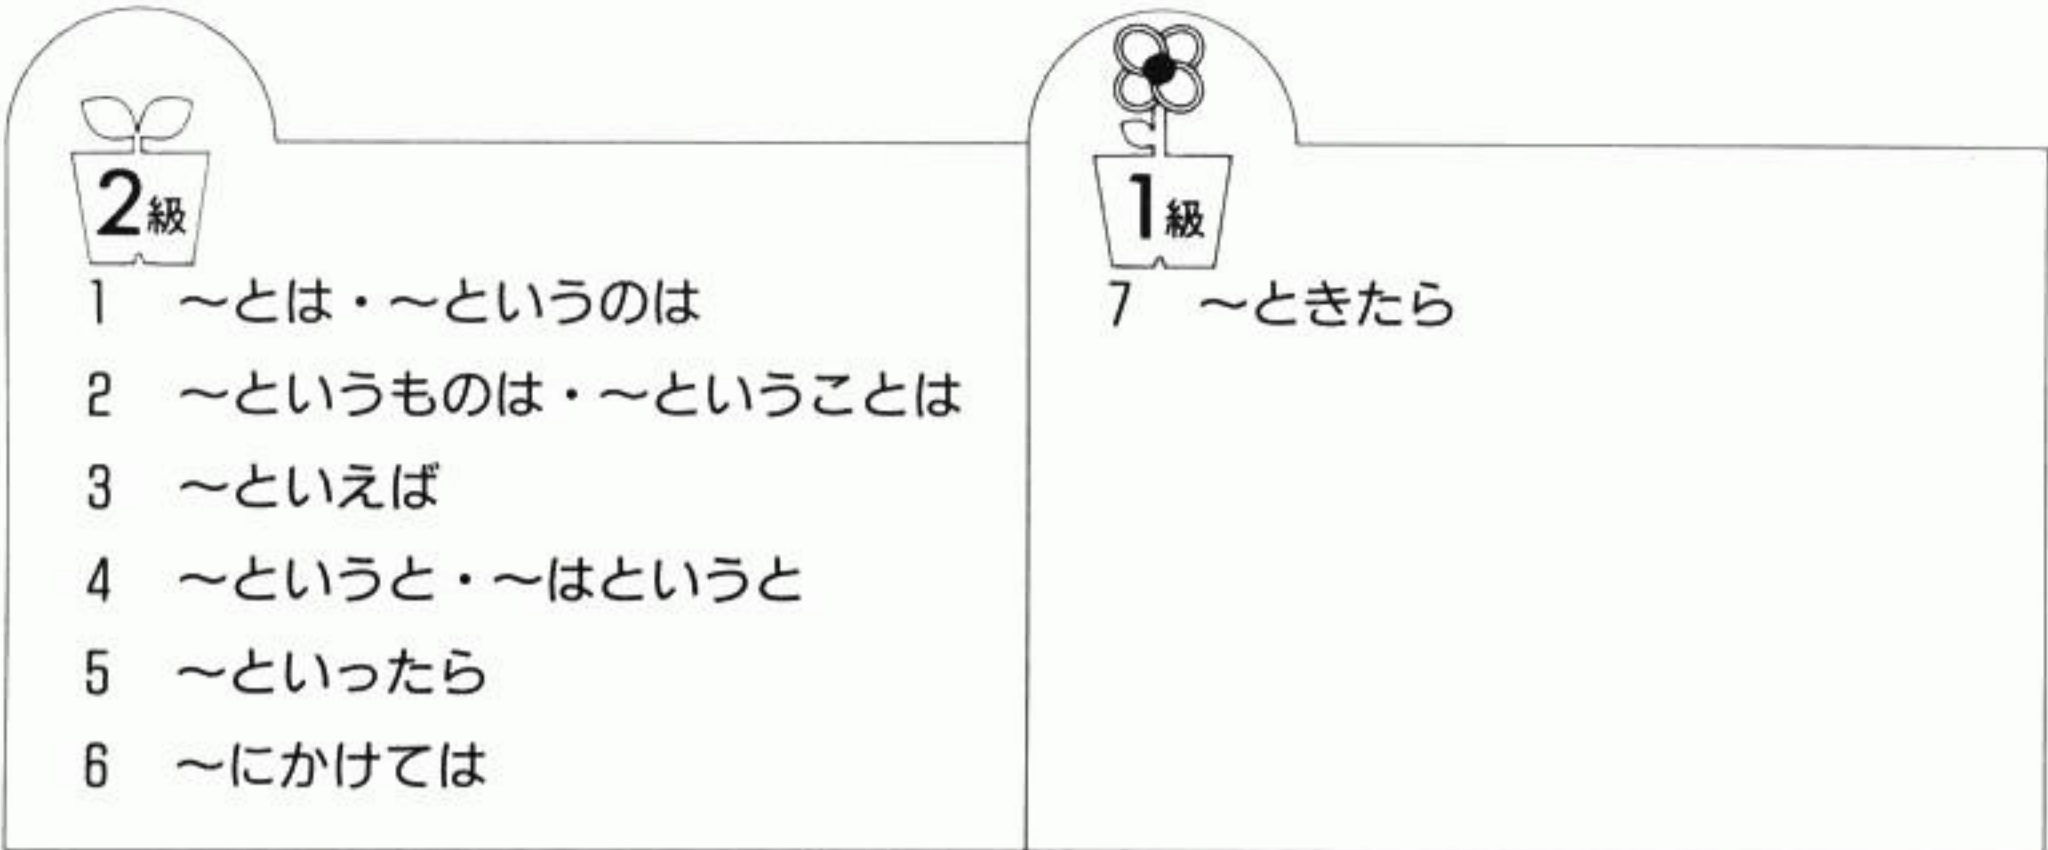 2級
1 ～とは・～というのは
2 ～というものは・～ということは
3 ～といえば
4 ～というと・～はというと
5 ～といったら
6 ～にかけては
1級
7 ～ときたら